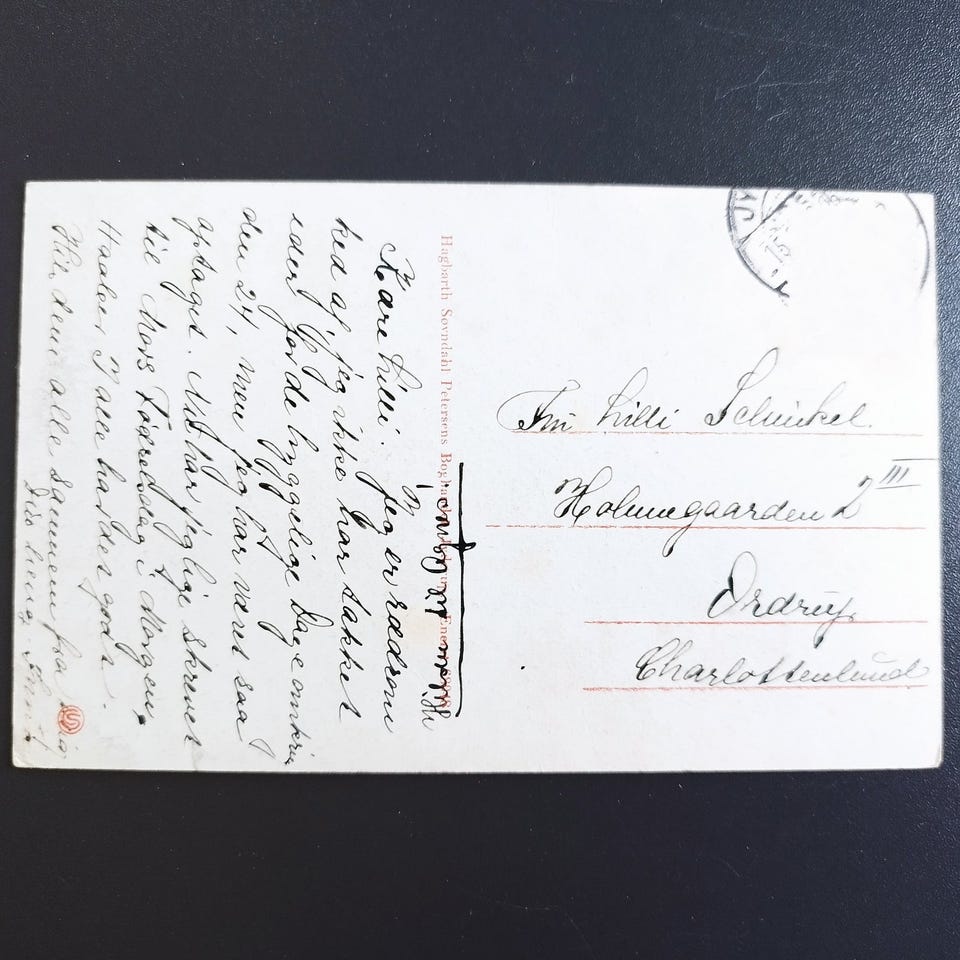 Kære Lilli. Jeg er rædsom
ked af, jeg ikke har takket
eder for de hyggelige Dage omkring
den 24, men jeg har været saa
optaget. Nu har jeg lige skrevet
til Mors Fødselsdag i Morgen,
Haaber I alle har det godt.
Hils dem alle sammen fra mig
Din heng.
Hagbarth Søvndahl Petersens Boghandel
Fru Lilli Schinkel.
Holmegaarden 2 III
Ordrup
Charlottenlund